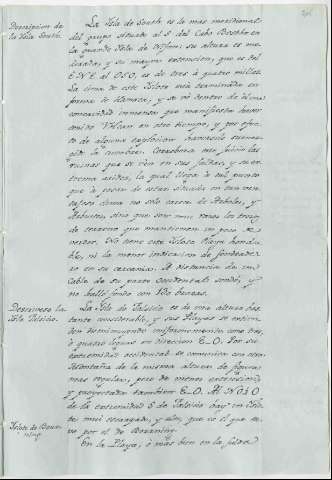 Descripcion de
la Isla South.
La Isla de South es la mas meridional
del grupo situado al S. del Cabo Boschho en
la grande Isla de Nifon: su altura es me-
diana, y su mayor extencion, que es del
ENE al OSO, es de tres à quatro millas.
La cima de este Islote está terminada en
forma de llanura, y se vé dentro de él una
concavidad inmensa que manifiesta haver
sido Volcan en otro tiempo, y que efec-
to de alguna explosion
la cumbre. Corrobora este juicio las
ruinas que se vén en sus faldas, y su ex-
trema aridez, la qual llega à tal punto
que à pesar de estar situada en tan ven-
tajoso clima no solo carece de Arboles, y
Arbustos, sino que son muy raros los trozos
de terreno que mantienen un poco de
verdor. No tiene este Islote Playa
ni la menor indicacion de fondeade-
ro en su cercania. A distancia de un
Cable de su parte occidental sondé, y
no hallé fondo con 120 brazas.
Descrivese la
Isla Falsicio.
La Isla de Falsicio es de una altura bas-
tante considerable, y sus Playas se extien-
den disminuyendo uniformemente como tres,
ò quatro leguas en direccion E-O. Por su
extremidad occidental se comunica con otra
Montaña de la misma altura de figura
mas regular, pero de menos extension
y proyectada tambien E-O. Al NO¼O
de la extremidad S de Falsicio hay un Islo-
te mui escarpado, y alto, que es el que se
vé por el de
Islote de
En la Playa, ó mas bien en la falda